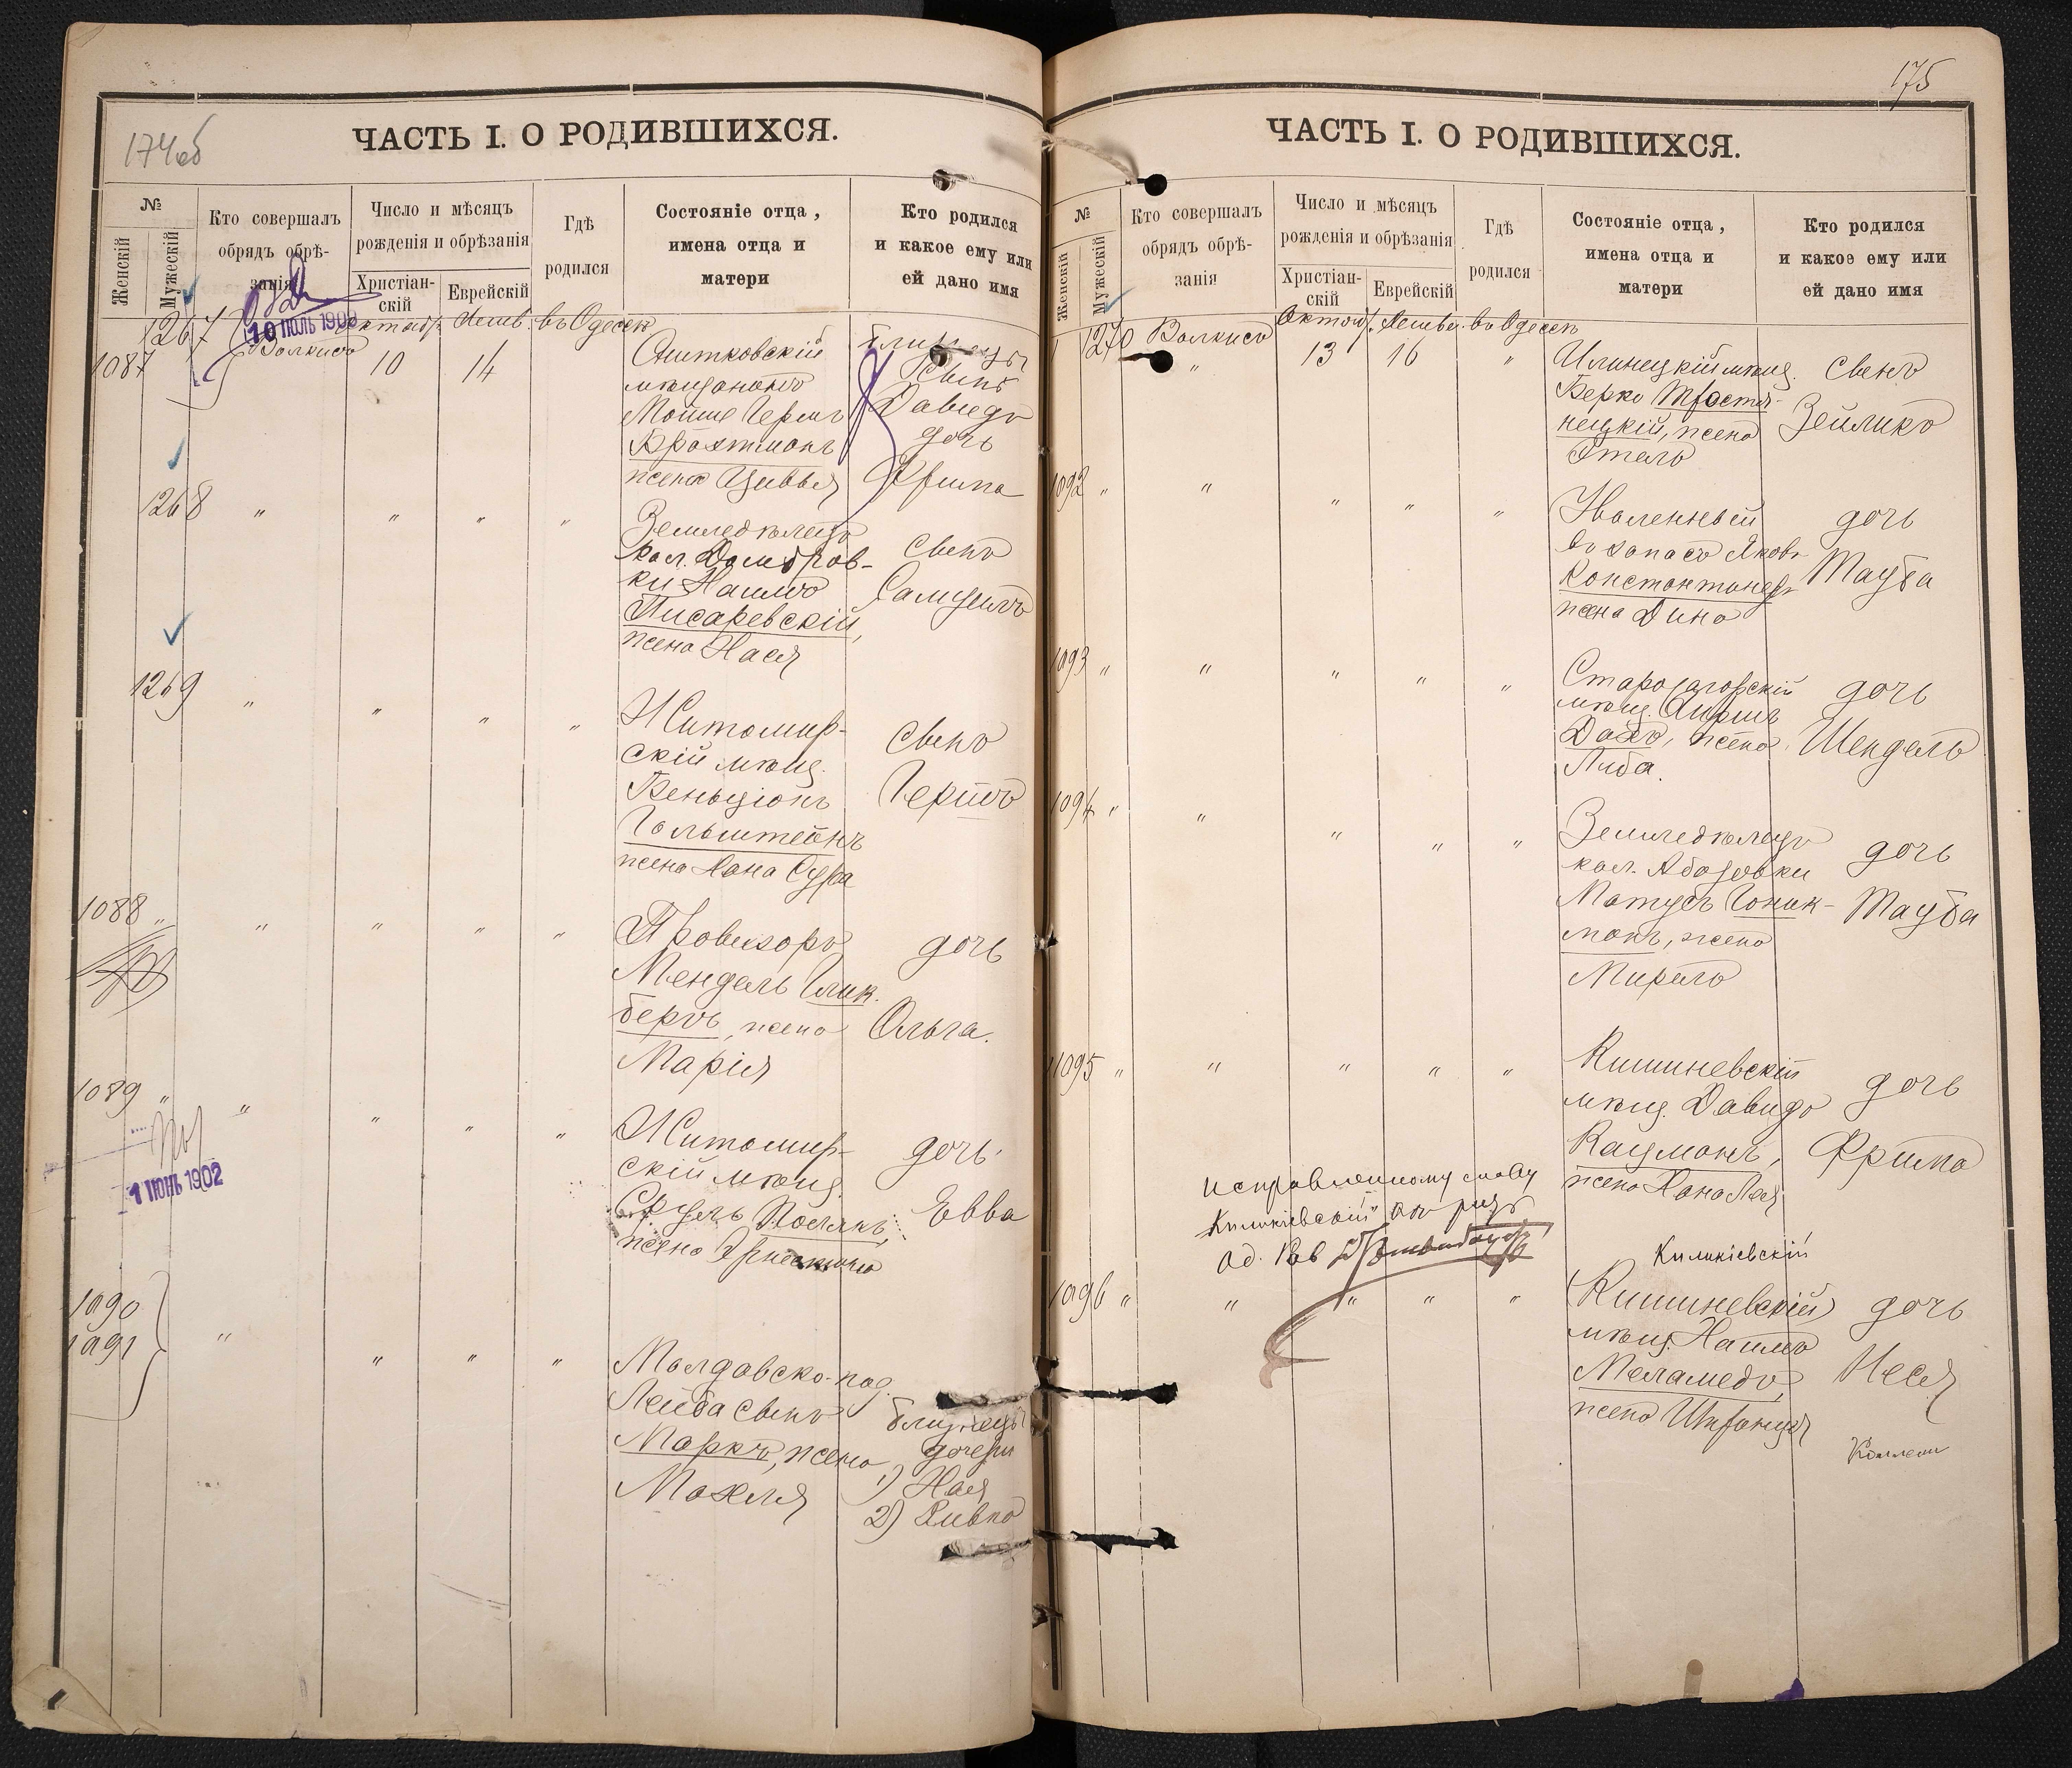 174об
ЧАСТЬ I. О РОДИВШИХСЯ.
№
Женскій
Мужескій
Кто совершалъ
обрядъ обрѣ-
занія
Число и мѣсяцъ
рожденія и обрѣзанія
Христіан-
скій
Еврейскій
Гдѣ
родился
Состояніе отца,
имена отца и
матери
Кто родился
и какое ему или
ей дано имя
1267
1087
10 ІЮЛЬ
Волкисъ
Октябр.
10
14
въ Одессѣ
Снитковскій
мѣщанинъ
Мойше Гершъ
жена Цивья
близнецы
сынъ
Давидъ
дочь
Фрима
1268 " " " "
Земледѣлецъ
кол. Домбров-
ки
Писаревскій,
жена Нася
сынъ
Самуилъ
1269 " " " "
Житомир-
скій мѣщ.
Беньціонъ
Гольштейнъ
жена Хана Сура
сынъ
Гершъ
1088 " " " " "
Провизоръ
Мендель Глик-
бергъ, жена
Марія
дочь
Ольга.
1089 " " " " "
1 ІЮНЬ 1902
Житомир-
скій мѣщ.
Сруль Полякъ,
жена
дочь
Евва
1090
1091
" " " "
Молдавско-под.
Лейба сынъ
Маркъ, жена
Махля
близнецы
дочери
1) Хая
2) Ривка
175
ЧАСТЬ I. О РОДИВШИХСЯ.
№
Женскій
Мужескій
Кто совершалъ
обрядъ обрѣ-
занія
Число и мѣсяцъ
рожденія и обрѣзанія
Христіан-
скій
Еврейскій
Гдѣ
родился
Состояніе отца,
имена отца и
матери
Кто родился
и какое ему или
ей дано имя
1270
Волкисъ
"
Октяб.
13
16
въ Одессѣ
"
Илинецкій мѣщ.
Берко Тростя-
нецкій, жена
Этель
сынъ
Зейликъ
1092 " " " " "
въ запасъ Яковъ
Константинеръ
жена Дина
дочь
Тауба
1093 " " " " "
мѣщ.
жена
Либа.
дочь
Шендель
1094 " " " " "
Земледѣлецъ
кол. Абазовки
Матусъ Гоник-
манъ, жена
Мирель
дочь
Тауба
1095 " " " " "
Кишиневскій
мѣщ. Давидъ
Кацманъ,
жена Хана Лея
дочь
Фрима
исправленному слову
Киликіевскій
Од. Рав
Киликіевскій
1096 " " " " "
Кишиневскій
мѣщ.
Меламедъ,
жена
дочь
Неся